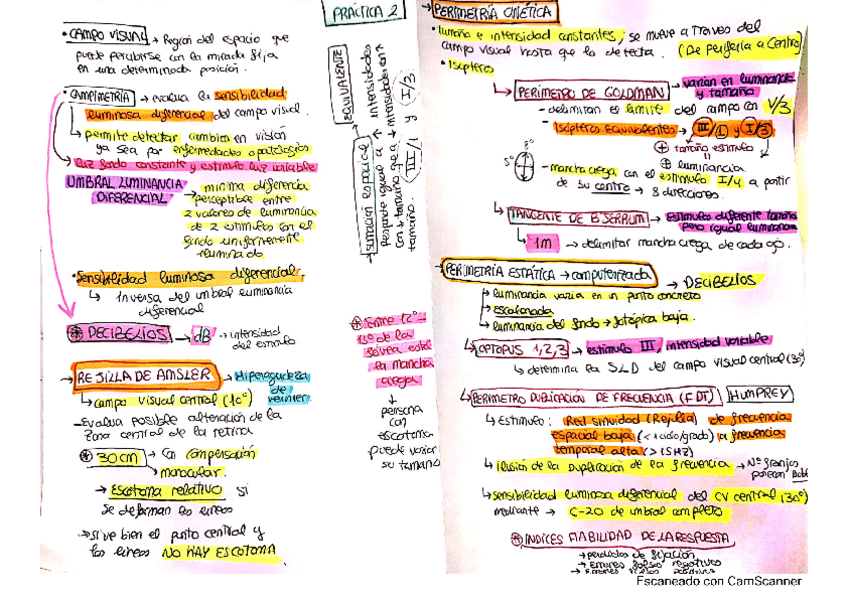 PRÁCTICA 2
• CAMPO VISUAL → Región del espacio que
puede percibirse con la mirada fija
en una determinada posición.
• CAMPIMETRÍA → evalua la sensibilidad
luminosa diferencial del campo visual.
↳ permite detectar cambios en visión
ya sea por enfermedades o patologías
luz fondo constante y estímulo luz variable
UMBRAL LUMINANCIA
DIFERENCIAL
→ mínima diferencia
perceptible entre
2 valores de luminancia
de 2 estímulos con el
fondo uniformemente
iluminado
• Sensibilidad luminosa diferencial.
↳ Inversa del umbral luminancia
diferencial
⊛ DECIBELIOS → dB → intensidad
del estímulo
→ REJILLA DE AMSLER → Hiperagudeza
de
vernier.
↳ campo visual central (10°)
- Evalua posible alteración de la
zona central de la retina
⊛ 30 cm → Con compensación
monocular.
→ Escotoma relativo si
se deforman las líneas
→ si ve bien el punto central y
las líneas NO HAY ESCOTOMA
EQUIVALENTE
→ sumación espacial
Responde igual a ↑ intensidades
con ↓ tamaño que a ↓ intensidades en ↑
tamaño. III/1 y I/3
⊛ Entre 12°
15° de la
fóvea está
la mancha
ciega
↓
persona
con
escotoma
puede variar
su tamaño
→ PERIMETRÍA CINÉTICA
• tamaño e intensidad constantes, se mueve a través del
campo visual hasta que lo detecta. (De periferia a centro)
• Isópteros
↳ PERÍMETRO DE GOLDMAN → varían en luminancia
y tamaño
- delimitan el límite del campo con V/3
- Isópteros equivalentes → III/1 y I/3
⊕ tamaño estímulo
=
⊕ luminancia
- mancha ciega con el estímulo I/4 a partir
de su centro → 8 direcciones.
↳ TANGENTE DE BJERRUM → estímulos diferente tamaño
pero igual luminancia
↳ 1m → delimitar mancha ciega de cada ojo.
→ PERIMETRÍA ESTÁTICA → computerizada → DECIBELIOS
↳ luminancia varia en un punto concreto
↳ escalonada
↳ luminancia del fondo → fotópica baja.
↳ OCTOPUS 1,2,3 → estímulo III, intensidad variable
↳ determina la SLD del campo visual central (30°)
↳ PERIMETRO DUPLICACIÓN DE FRECUENCIA (FDT) HUMPREY
↳ Estímulo: Red sinuidad (Rejilla) de frecuencia
espacial baja (<1 ciclo/grado) la frecuencia
temporal alta (>15HZ)
↳ ilusión de la duplicación de la frecuencia → Nº franjas
↳ sensibilidad luminosa diferencial del CV central (30°)
mediante → C-20 de umbral completo
⊛ INDICES FIABILIDAD DE LA RESPUESTA
→ perdidas de fijación
→ errores falsos negativos
→ errores falsos positivos
Escaneado con CamScanner